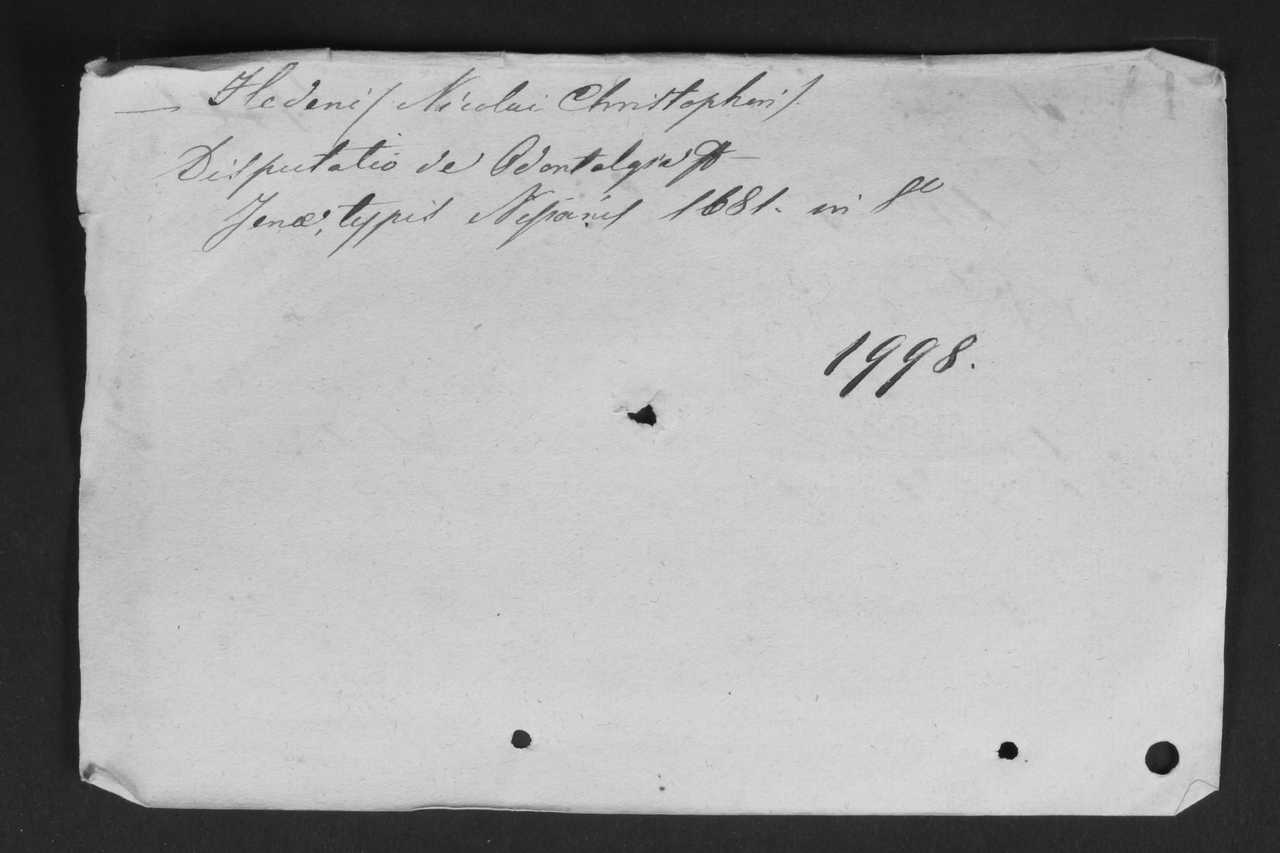 — Hedeni/ Nicolai Christopheri/.
Disputatio de Odontalgia
Jenæ, typis Nisianis 1681. in 8º
1998.